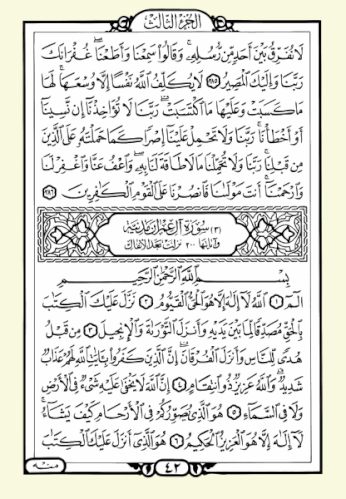 الجزء الثالث
لَا نُفَرِّقُ بَيْنَ أَحَدٍ مِّن رُّسُلِهِ وَقَالُوا سَمِعْنَا وَأَطَعْنَا غُفْرَانَكَ
رَبَّنَا وَإِلَيْكَ الْمَصِيرُ ٢٨٥ لَا يُكَلِّفُ اللَّهُ نَفْسًا إِلَّا وُسْعَهَا لَهَا
مَا كَسَبَتْ وَعَلَيْهَا مَا اكْتَسَبَتْ رَبَّنَا لَا تُؤَاخِذْنَا إِن نَّسِينَا
أَوْ أَخْطَأْنَا رَبَّنَا وَلَا تَحْمِلْ عَلَيْنَا إِصْرًا كَمَا حَمَلْتَهُ عَلَى الَّذِينَ
مِن قَبْلِنَا رَبَّنَا وَلَا تُحَمِّلْنَا مَا لَا طَاقَةَ لَنَا بِهِ وَاعْفُ عَنَّا وَاغْفِرْ لَنَا
وَارْحَمْنَا أَنتَ مَوْلَانَا فَانصُرْنَا عَلَى الْقَوْمِ الْكَافِرِينَ ٢٨٦
(٣) سورة آل عمران مدنية
وآياتها ٢٠٠ نزلت بعد الأنفال
بِسْمِ اللَّهِ الرَّحْمَٰنِ الرَّحِيمِ
الٓمٓ ١ اللَّهُ لَا إِلَٰهَ إِلَّا هُوَ الْحَيُّ الْقَيُّومُ ٢ نَزَّلَ عَلَيْكَ الْكِتَابَ
بِالْحَقِّ مُصَدِّقًا لِّمَا بَيْنَ يَدَيْهِ وَأَنزَلَ التَّوْرَاةَ وَالْإِنجِيلَ ٣ مِن قَبْلُ
هُدًى لِّلنَّاسِ وَأَنزَلَ الْفُرْقَانَ إِنَّ الَّذِينَ كَفَرُوا بِآيَاتِ اللَّهِ لَهُمْ عَذَابٌ
شَدِيدٌ وَاللَّهُ عَزِيزٌ ذُو انتِقَامٍ ٤ إِنَّ اللَّهَ لَا يَخْفَىٰ عَلَيْهِ شَيْءٌ فِي الْأَرْضِ
وَلَا فِي السَّمَاءِ ٥ هُوَ الَّذِي يُصَوِّرُكُمْ فِي الْأَرْحَامِ كَيْفَ يَشَاءُ
لَا إِلَٰهَ إِلَّا هُوَ الْعَزِيزُ الْحَكِيمُ ٦ هُوَ الَّذِي أَنزَلَ عَلَيْكَ الْكِتَابَ
٤٢
منه